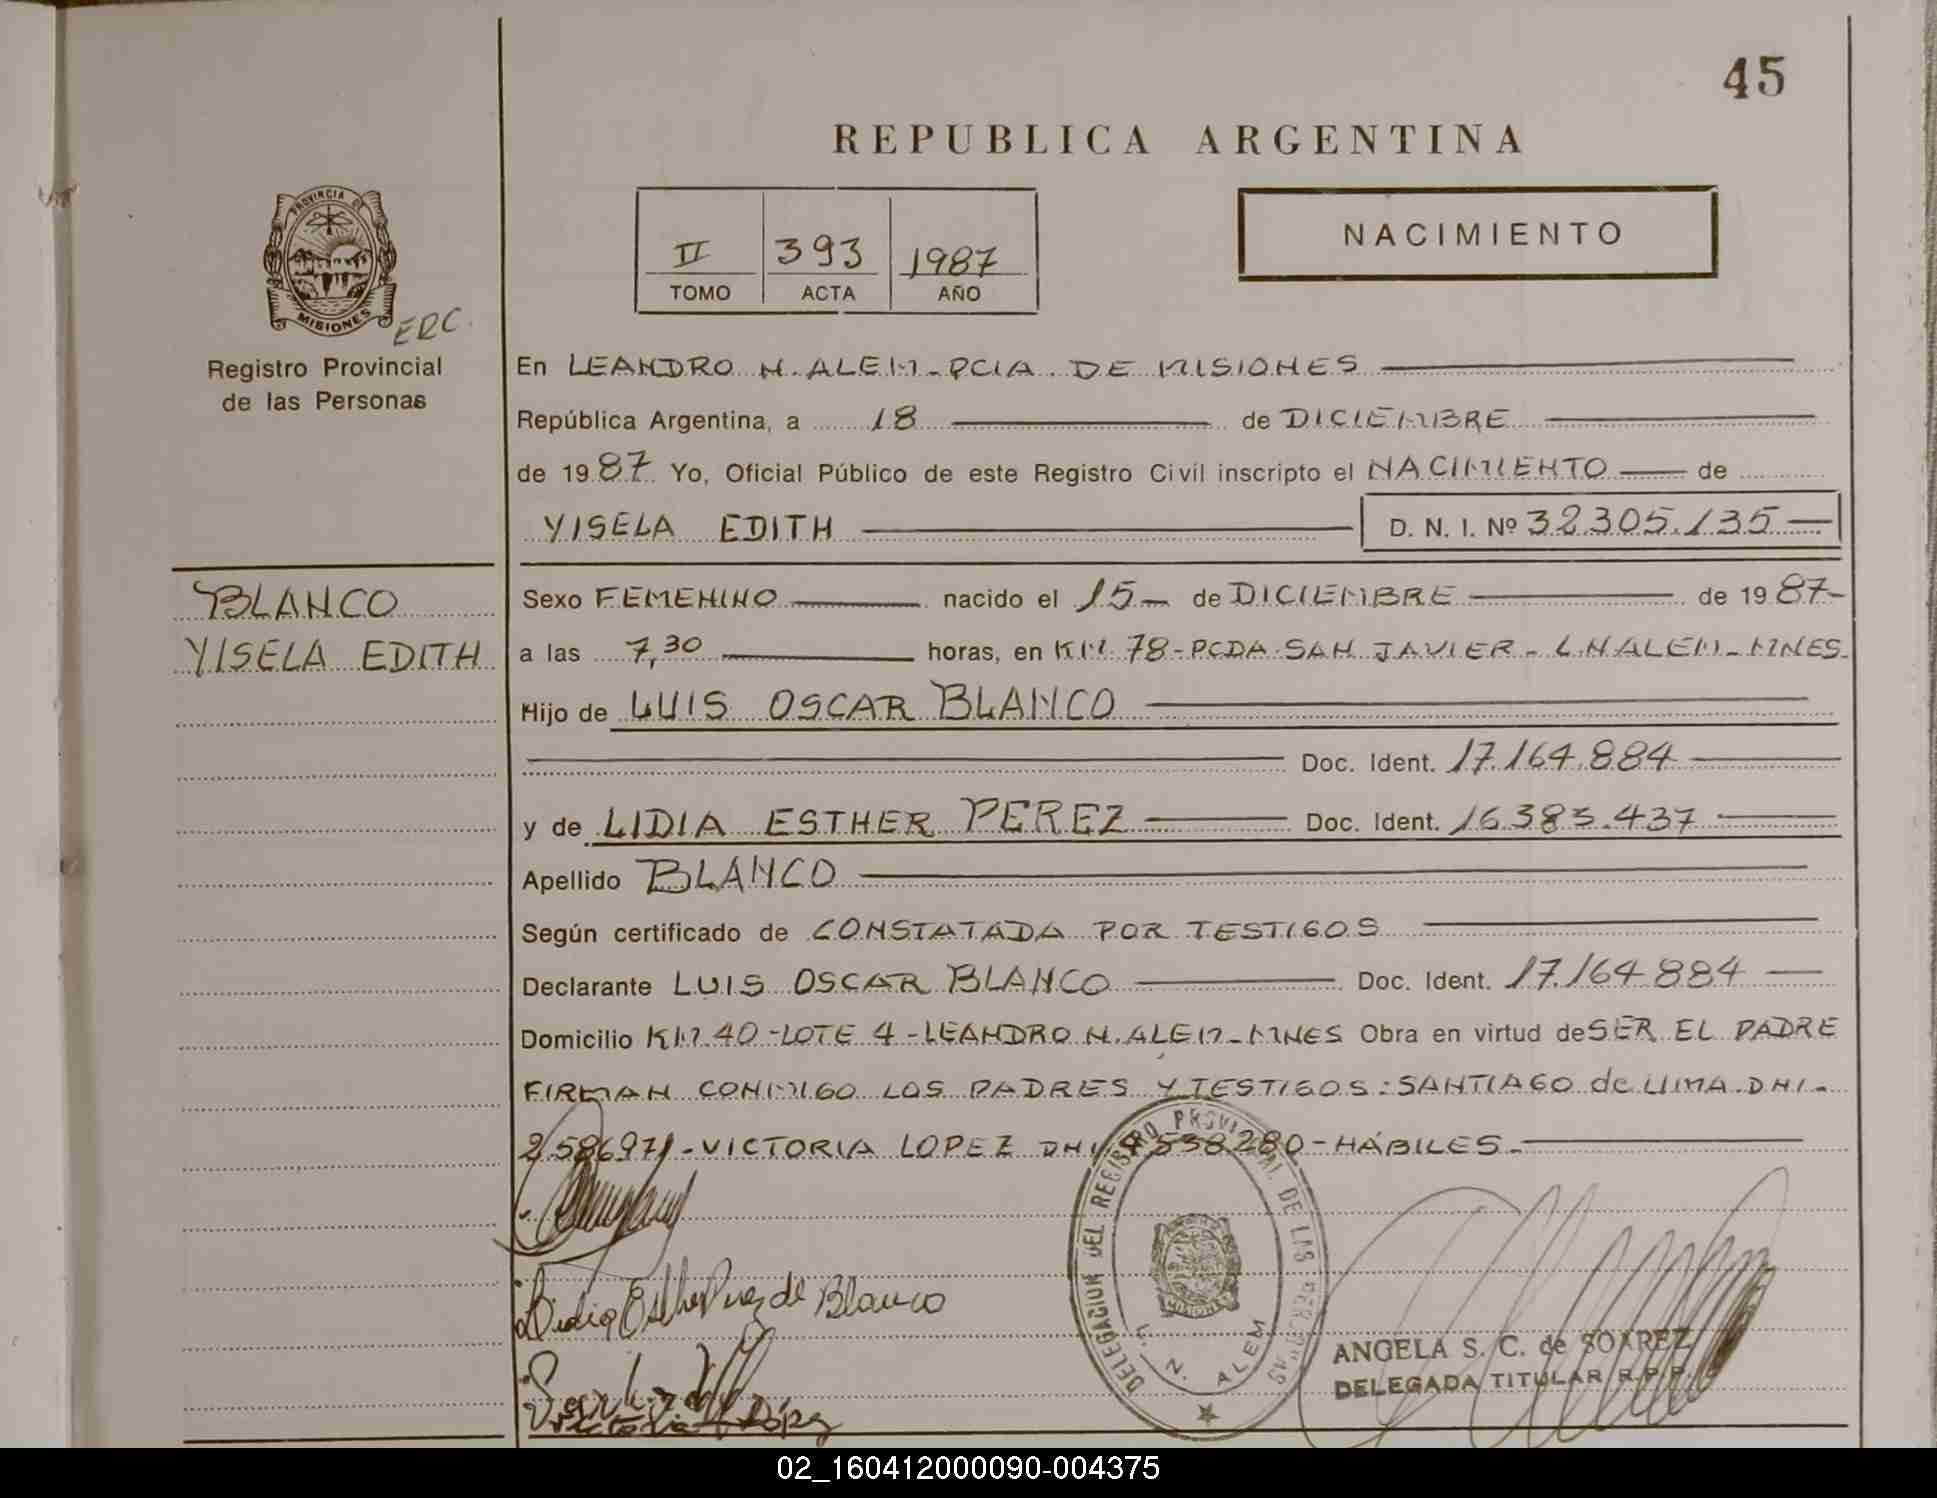 45
REPUBLICA ARGENTINA
PROVINCIA DE
MISIONES
ERC
Registro Provincial
de las Personas
II 393 1987
TOMO ACTA AÑO
NACIMIENTO
En LEANDRO N. ALEM - PCIA. DE MISIONES
República Argentina, a 18 de DICIEMBRE
de 1987 Yo, Oficial Público de este Registro Civil inscripto el NACIMIENTO de
YISELA EDITH D. N. I. Nº 32.305.135
BLANCO
YISELA EDITH
Sexo FEMENINO nacido el 15 - de DICIEMBRE de 1987 -
a las 7,30 horas, en KM. 78 - PCDA. SAN JAVIER - L.N.ALEM - MNES.
Hijo de LUIS OSCAR BLANCO
Doc. Ident. 17.164.884
y de LIDIA ESTHER PEREZ Doc. Ident. 16.383.437
Apellido BLANCO
Según certificado de CONSTATADA POR TESTIGOS
Declarante LUIS OSCAR BLANCO Doc. Ident. 17.164.884
Domicilio KM. 40 - LOTE 4 - LEANDRO N. ALEM - MNES Obra en virtud de SER EL PADRE
FIRMAN CONMIGO LOS PADRES Y TESTIGOS: SANTIAGO de LIMA DNI -
2.586971 - VICTORIA LOPEZ DNI 538280 - HÁBILES. -
Lidia Esther Perez de Blanco
Victoria López
DELEGACION DEL REGISTRO PROVINCIAL DE LAS PERSONAS
L. N. ALEM
MISIONES
ANGELA S. C. de SOAREZ
DELEGADA TITULAR R.P.P.
02_160412000090-004375